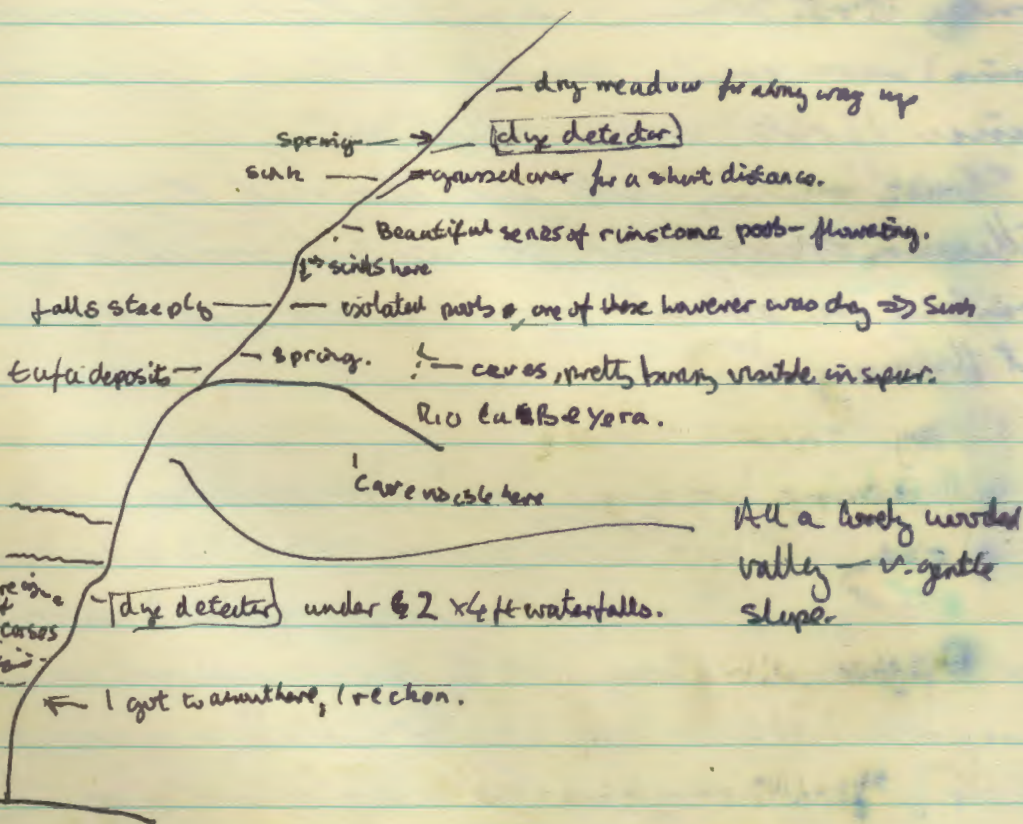 dry meadow for a long way up
Spring
dye detector
sink
grassed over for a short distance.
Beautiful series of rimstone pools - flowering.
sinks here
falls steeply
isolated pools, one of these however was dry => Sinks
tufa deposits
spring.
caves, pretty visible in spur.
Rio
Cave visible here
All a lovely wooded
valley - v. gentle
slope.
dye detector under 2 x 4 ft waterfalls.
I got to about here, I reckon.